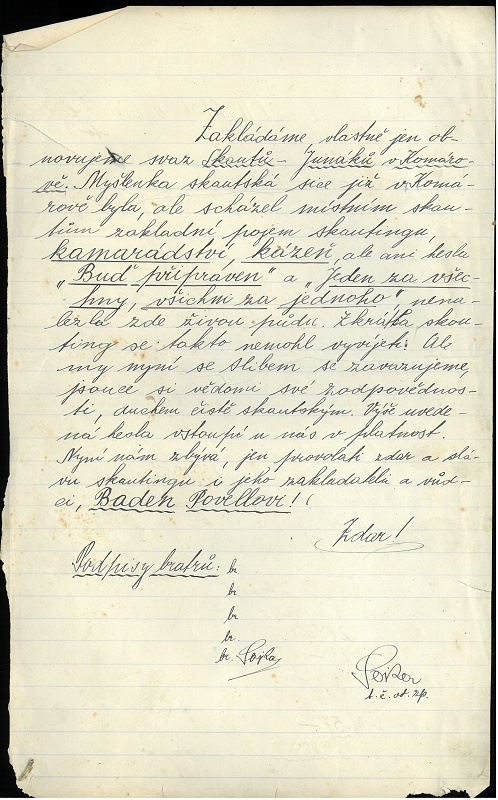 Zakládáme vlastně jen ob-
novujeme svaz Skautů - Junáků v Komáro-
vě. Myšlenka skautská sice již v Komá-
rově byla, ale scházel místním skau-
tům základní pojem skautingu,
kamarádství, kázeň, ale ani hesla
„Buď připraven" a „Jeden za všec-
hny, všichni za jednoho", nena-
lezla zde živou půdu. Zkrátka skau-
ting se takto nemohl vyvíjeti. Ale
my nyní se slibem se zavazujeme,
jsouce si vědomi své zodpovědnos-
ti, duchem čistě skautským. Výše uvede-
ná hesla vstoupí u nás v platnost.
Nyní nám zbývá, jen provolati zdar a slá-
vu skautingu i jeho zakladateli a vůd-
ci, Baden Povellovi!
Zdar!
Podpisy bratrů: br.
br
br
br.
br.
t. č.